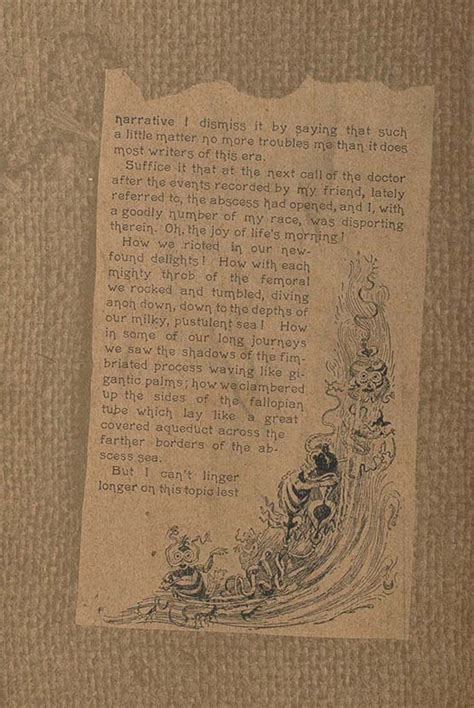 narrative I dismiss it by saying that such
a little matter no more troubles me than it does
most writers of this era.
Suffice it that at the next call of the doctor
after the events recorded by my friend, lately
referred to, the abscess had opened, and I, with
a goodly number of my race, was disporting
therein. Oh, the joy of life's morning!
How we rioted in our new-
found delights! How with each
mighty throb of the femoral
we rocked and tumbled, diving
anon down, down to the depths of
our milky, pustulent sea! How
in some of our long journeys
we saw the shadows of the fim-
briated process waving like gi-
gantic palms; how we clambered
up the sides of the fallopian
tube which lay like a great
covered aqueduct across the
farther borders of the ab-
scess sea.
But I can't linger
longer on this topic lest